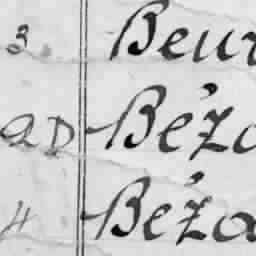 3. Beur
2D Béza
4 Béza